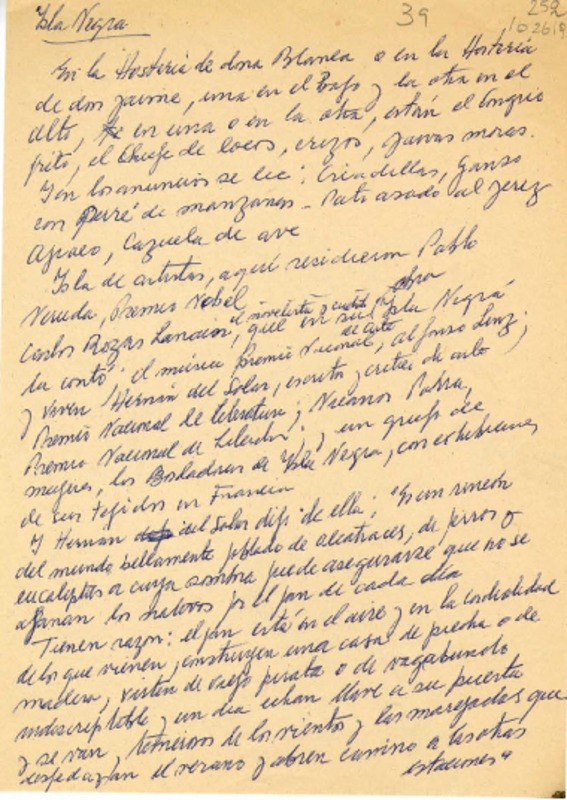 Isla Negra
39
252
En la Hostería de doña Blanca o en la Hostería
de don Jaime, una en el Bajo y la otra en el
alto, en una o en la otra, están el Congrio
frito, el Chupe de locos, erizos, jaivas moras.
Y en los anuncios se lee: Criadillas, Ganso
con Puré de manzanas - Pato asado al jerez
Apiao, Cazuela de ave
Isla de artistas, aquí residieron Pablo
Neruda, Premio Nobel
Carlos Rozas Larraín, el novelista y que en su obra Isla Negra
la contó, el músico premio Nacional de arte, Alfonso Leng;
y viven Hernán del Solar, escritor y crítico de arte
Premio Nacional de Literatura; Nicanor Parra,
Premio Nacional de Literatura; un grupo de
mujeres, las Bordadoras de Isla Negra, con exhibiciones
de sus tejidos en Francia
Y Hernán del Solar dijo de ella: "Es un rincón
del mundo bellamente poblado de alcatraces, de perros y
eucaliptos a cuya sombra puede asegurarse que no se
afanan los nativos por el pan de cada día
Tienen razón: el pan está en el aire y en la cordialidad
de los que vienen, construyen una casa de piedra o de
madera, visten de viejo pirata o de vagabundo
indescriptible y un día echan llave a su puerta
y se van, temerosos de los vientos y las marejadas que
despedazan el verano y abren camino a las otras
estaciones"